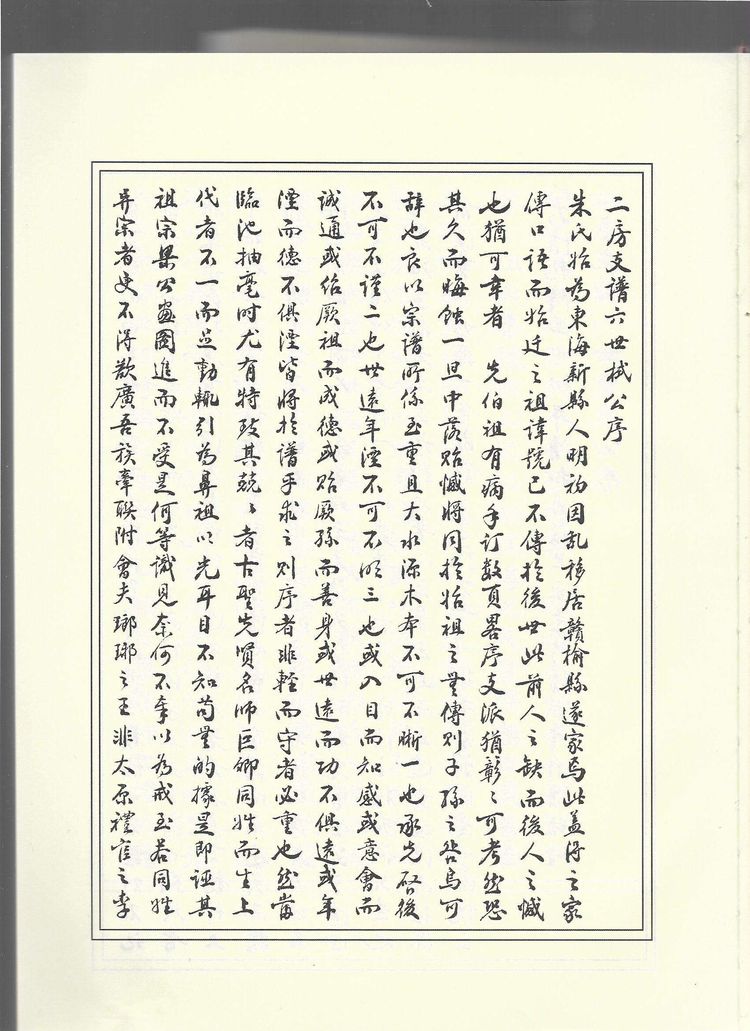 二房支譜六世栻公序
朱氏始為東海新縣人明初因乱移居贛榆縣遂家焉此盖得之家
傳口語而始迁之祖諱號已不傳於後世此前人之缺而後人之憾
也猶可幸者 先伯祖有病手订数頁畧序支派猶彰〻可考然恐
其久而晦蝕一旦中落貽憾將同於始祖之無傳則子孫之咎烏可
辞也良以宗譜所係至重且大水源木本不可不晰一也承先啓後
不可不谨二也世遠年湮不可不明三也或入目而知感或意會而
誠通或绍厥祖而成德或貽厥孫而善身或世遠而功不俱遠或年
湮而德不俱湮皆將於譜乎求之则序者非輕而守者必重也然當
臨池抽毫时尤有特致其兢〻者古聖先賢名师巨卿同姓而生上
代者不一而足動輒引為鼻祖以光耳目不知苟無的據是即誣其
祖宗梁公畫圖進而不受是何等識見奈何不奉以為戒至若同姓
异宗者更不得欲廣吾族牽聯附會夫瑯琊之王非太原禮官之李